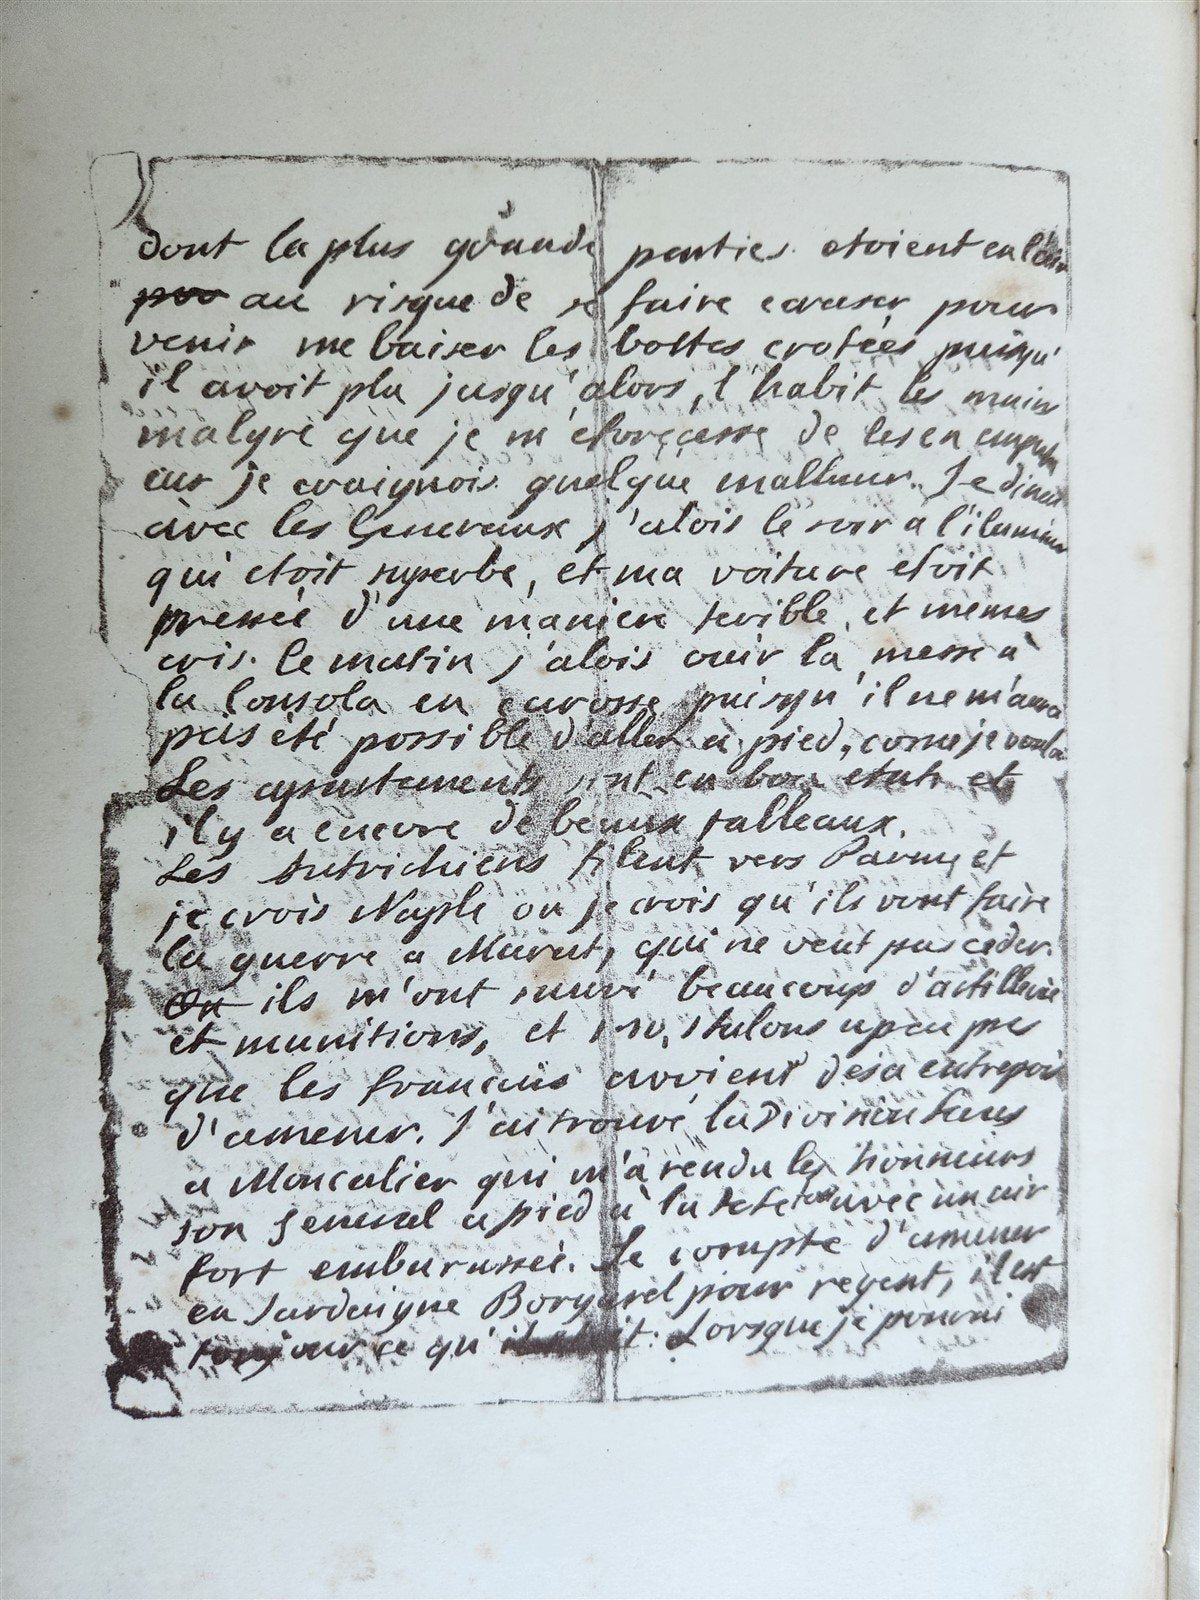 dont la plus grande parties etoient en l'air
au risque de se faire ecraser pour
venir me baiser les bottes crotées puisqu'
il avoit plu jusqu'alors, l'habit les main
malgré que je m'eforçasse de les en
car je craignois quelque malheur. Je
avec les Generaux j'alois le soir a l'ilumin
qui etoit superbe, et ma voiture etoit
pressée d'une maniere terible, et memes
cris. le matin j'alois ouir la messe à
la Consola en carosse puisqu'il ne m'
pas été possible d'aller a pied, come je voul
Les apartements sont en bon etat et
il y a encore de beaux tableaux.
Les Autrichiens filent vers Parme et
je crois Naple ou je crois qu'ils vont faire
la guerre a Murat, qui ne veut pas ceder.
ils m'ont beaucoup d'artillerie
et munitions, et etalons a peu pres
que les français avoient deja entrepris
d'amener. J'ai trouvé la Division
a Moncalier qui m'a rendu les honneurs
son General a pied à la tete avec un air
fort embarassé. Je compte d'amener
en Sardaigne pour regent, il est
toujour ce qu'il etoit. Lorsque je pourai